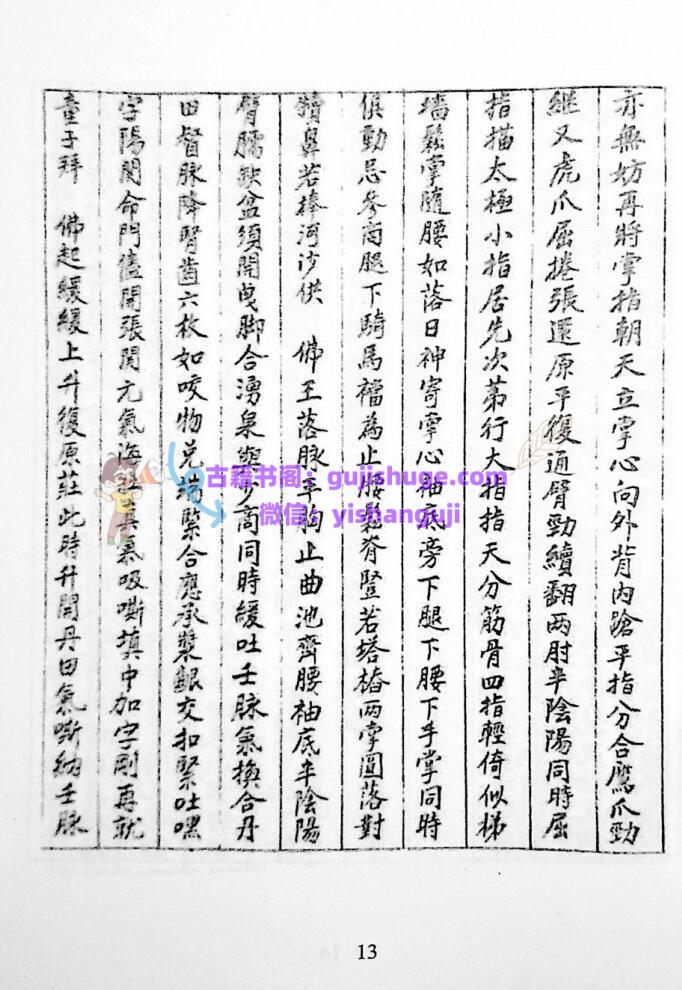 亦無妨再將掌指朝天立掌心向外背内蹌平指分合鷹爪勁
繼又虎爪屈捲張還原平復通臂勁續翻两肘半陰陽同時屈
指描太極小指居先次第行大指指天分筋骨四指輕倚似梯
墻鬆掌隨腰如落日神寄掌心袖底旁下腿下腰下手掌同時
俱動忌參商腿下騎馬襠為止腰鬆脊豎若塔樁两掌圓落對
犢鼻若捧河沙供 佛王落脉平胸止曲池齊腰袖底半陰陽
臂臑缺盆須開曳脚合湧泉與少商同時緩吐壬脉氣換合丹
田督脉降腎齒六枚如咬物兑端緊合應承漿齦交扣緊吐嘿
字陽関命門儘開張関元氣海 真氣吸嘶填中加字剛再就
童子拜 佛起緩緩上升復原莊此時升開丹田氣嘶納壬脉
古籍书阁：gujishuge.com
微信：yishanguji
13